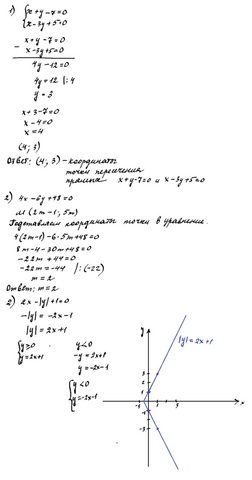 1) { x+y-7=0
x-3y+5=0
- x+y-7=0
x-3y+5=0
4y-12=0
4y=12 |:4
y=3
x+3-7=0
x-4=0
x=4
(4; 3)
Ответ: (4; 3) - координаты
точки пересечения
прямых x+y-7=0 и x-3y+5=0
2) 4x-6y+48=0
M (2m-1; 5m)
Подставляем координаты точки в уравнение.
4(2m-1)-6·5m+48=0
8m-4-30m+48=0
-22m+44=0
-22m=-44 |:(-22)
m=2
Ответ: m=2
2) 2x-|y|+1=0
-|y|=-2x-1
|y|=2x+1
{ y≥0 y<0
y=2x+1 -y=2x+1
y=-2x-1
{ y<0
y=-2x-1
y
|y|=2x+1
3
1
-1
1
3
x
-1
-3